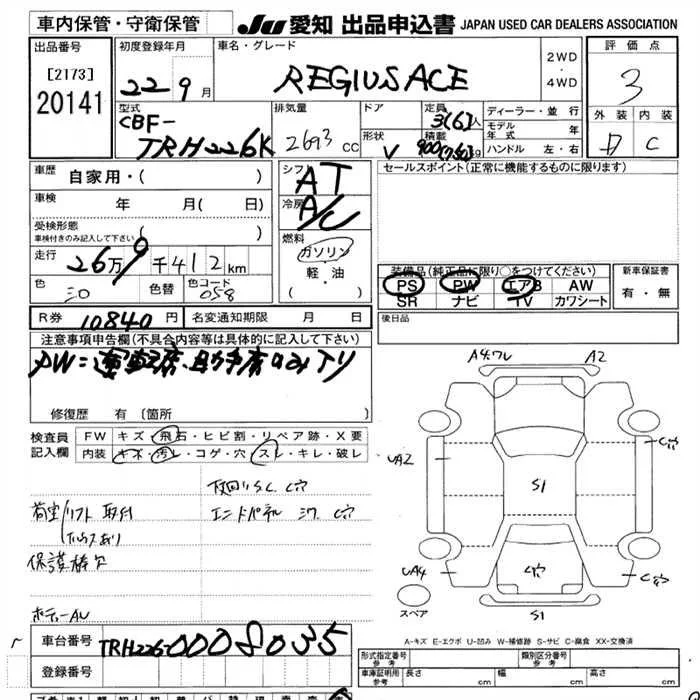 車内保管・守衛保管
JU 愛知 出品申込書 JAPAN USED CAR DEALERS ASSOCIATION
出品番号
[2173]
20141
初度登録年月
22 9月
車名・グレード
REGIUSACE
2WD
・
4WD
評価点
3
外装 内装
D C
型式
CBF-
TRH226K
排気量
2693 cc
ドア
形状
V
定員
3(6)人
積載
900(750)kg
ディーラー・並行
モデル年式 年
ハンドル 左・右
車歴
自家用・( )
車検
年 月( 日)
受検形態
車検付きのみ記入して下さい
( )
走行
26万9千412km
色
シロ
色替
色コード
058
シフト
AT
冷房
A/C
燃料
ガソリン
・
軽・油
( )
セールスポイント(正常に機能するものに限ります)
装備品(純正品に限り○をつけてください)
PS PW エアB AW
SR ナビ TV カワシート
新車保証書
有・無
R券 10840円
名変通知期限 月 日
後日品
注意事項申告欄(不具合内容等は具体的に記入して下さい)
修復歴 有(箇所
検査員
記入欄
FW キズ・飛石・ヒビ割・リペア跡・X要
内装 キズ・汚レ・コゲ・穴・スレ・キレ・破レ
下回りS,C,C穴
荷室 リフト取付
エンドパネル シワ C穴
保護棒欠
A4ワレ
A2
UA2
C穴
S1
UA4
C穴
C穴
S1
スペア
A-キズ E-エクボ U-凹み W-補修跡 S-サビ C-腐食 XX-交換済
車台番号
TRH226-0008035
登録番号
形式指定番号
参考
類別区分番号
参考
車庫証明用
参考
長さ cm
幅 cm
高さ cm